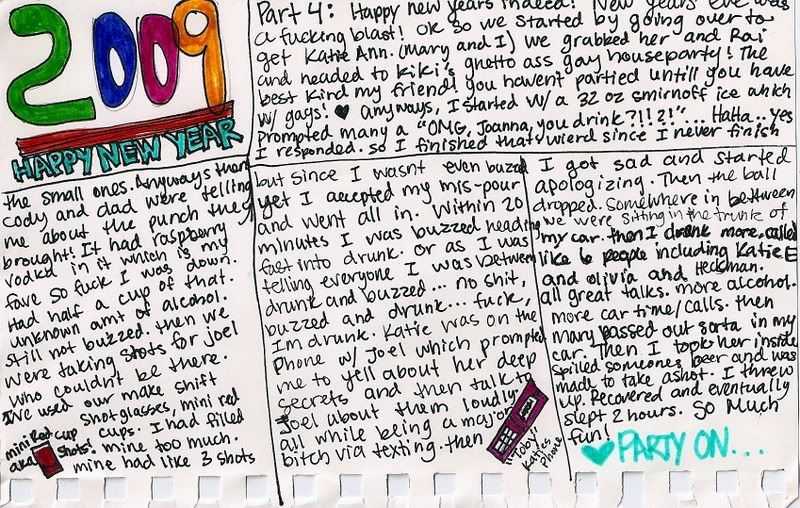 2009
HAPPY NEW YEAR
Part 4: Happy new years indeed! New years eve was
a fucking blast! OK so we started by going over to
get Katie Ann. (Mary and I) we grabbed her and Rai
and headed to Kiki's ghetto ass gay houseparty! The
best kind my friend! you havent partied untill you have
w/ gays! ♥ Anyways, I started w/ a 32 oz smirnoff ice which
prompted many a "OMG, Joanna, you drink?!!?!"... HaHa.. yes
I responded. so I finished that, wierd since I never finish
the small ones. Anyways then
cody and dad were telling
me about the punch they
brought! It had raspberry
vodka in it which is my
fave so fuck I was down.
Had half a cup of that.
unknown amt of alcohol.
still not buzzed. then we
were taking shots for joel
who couldn't be there.
I've used our make shift
shotglasses, mini red
cups. I had filled
mine too much.
mine had like 3 shots
mini Red cup
aka shots!
but since I wasnt even buzzed
yet I accepted my mis-pour
and went all in. Within 20
minutes I was buzzed heading
fast into drunk. or as I was
telling everyone I was between
drunk and buzzed... no shit,
buzzed and drunk... fuck,
Im drunk. Katie was on the
Phone w/ Joel which prompted
me to yell about her deep
secrets and then talk to
Joel about them loudly
all while being a major
bitch via texting. then
Katies
Phone
I got sad and started
apologizing. Then the ball
dropped. Somewhere in between
we were sitting in the trunk of
my car. then I drank more. called
like 6 people including Katie E
and olivia and Heckman.
all great talks. more alcohol.
more car time/calls. then
Mary passed out sorta in my
car. Then I took her inside
spilled someones beer and was
made to take a shot. I threw
up. Recovered and eventually
slept 2 hours. So Much
fun!
♥ PARTY ON...